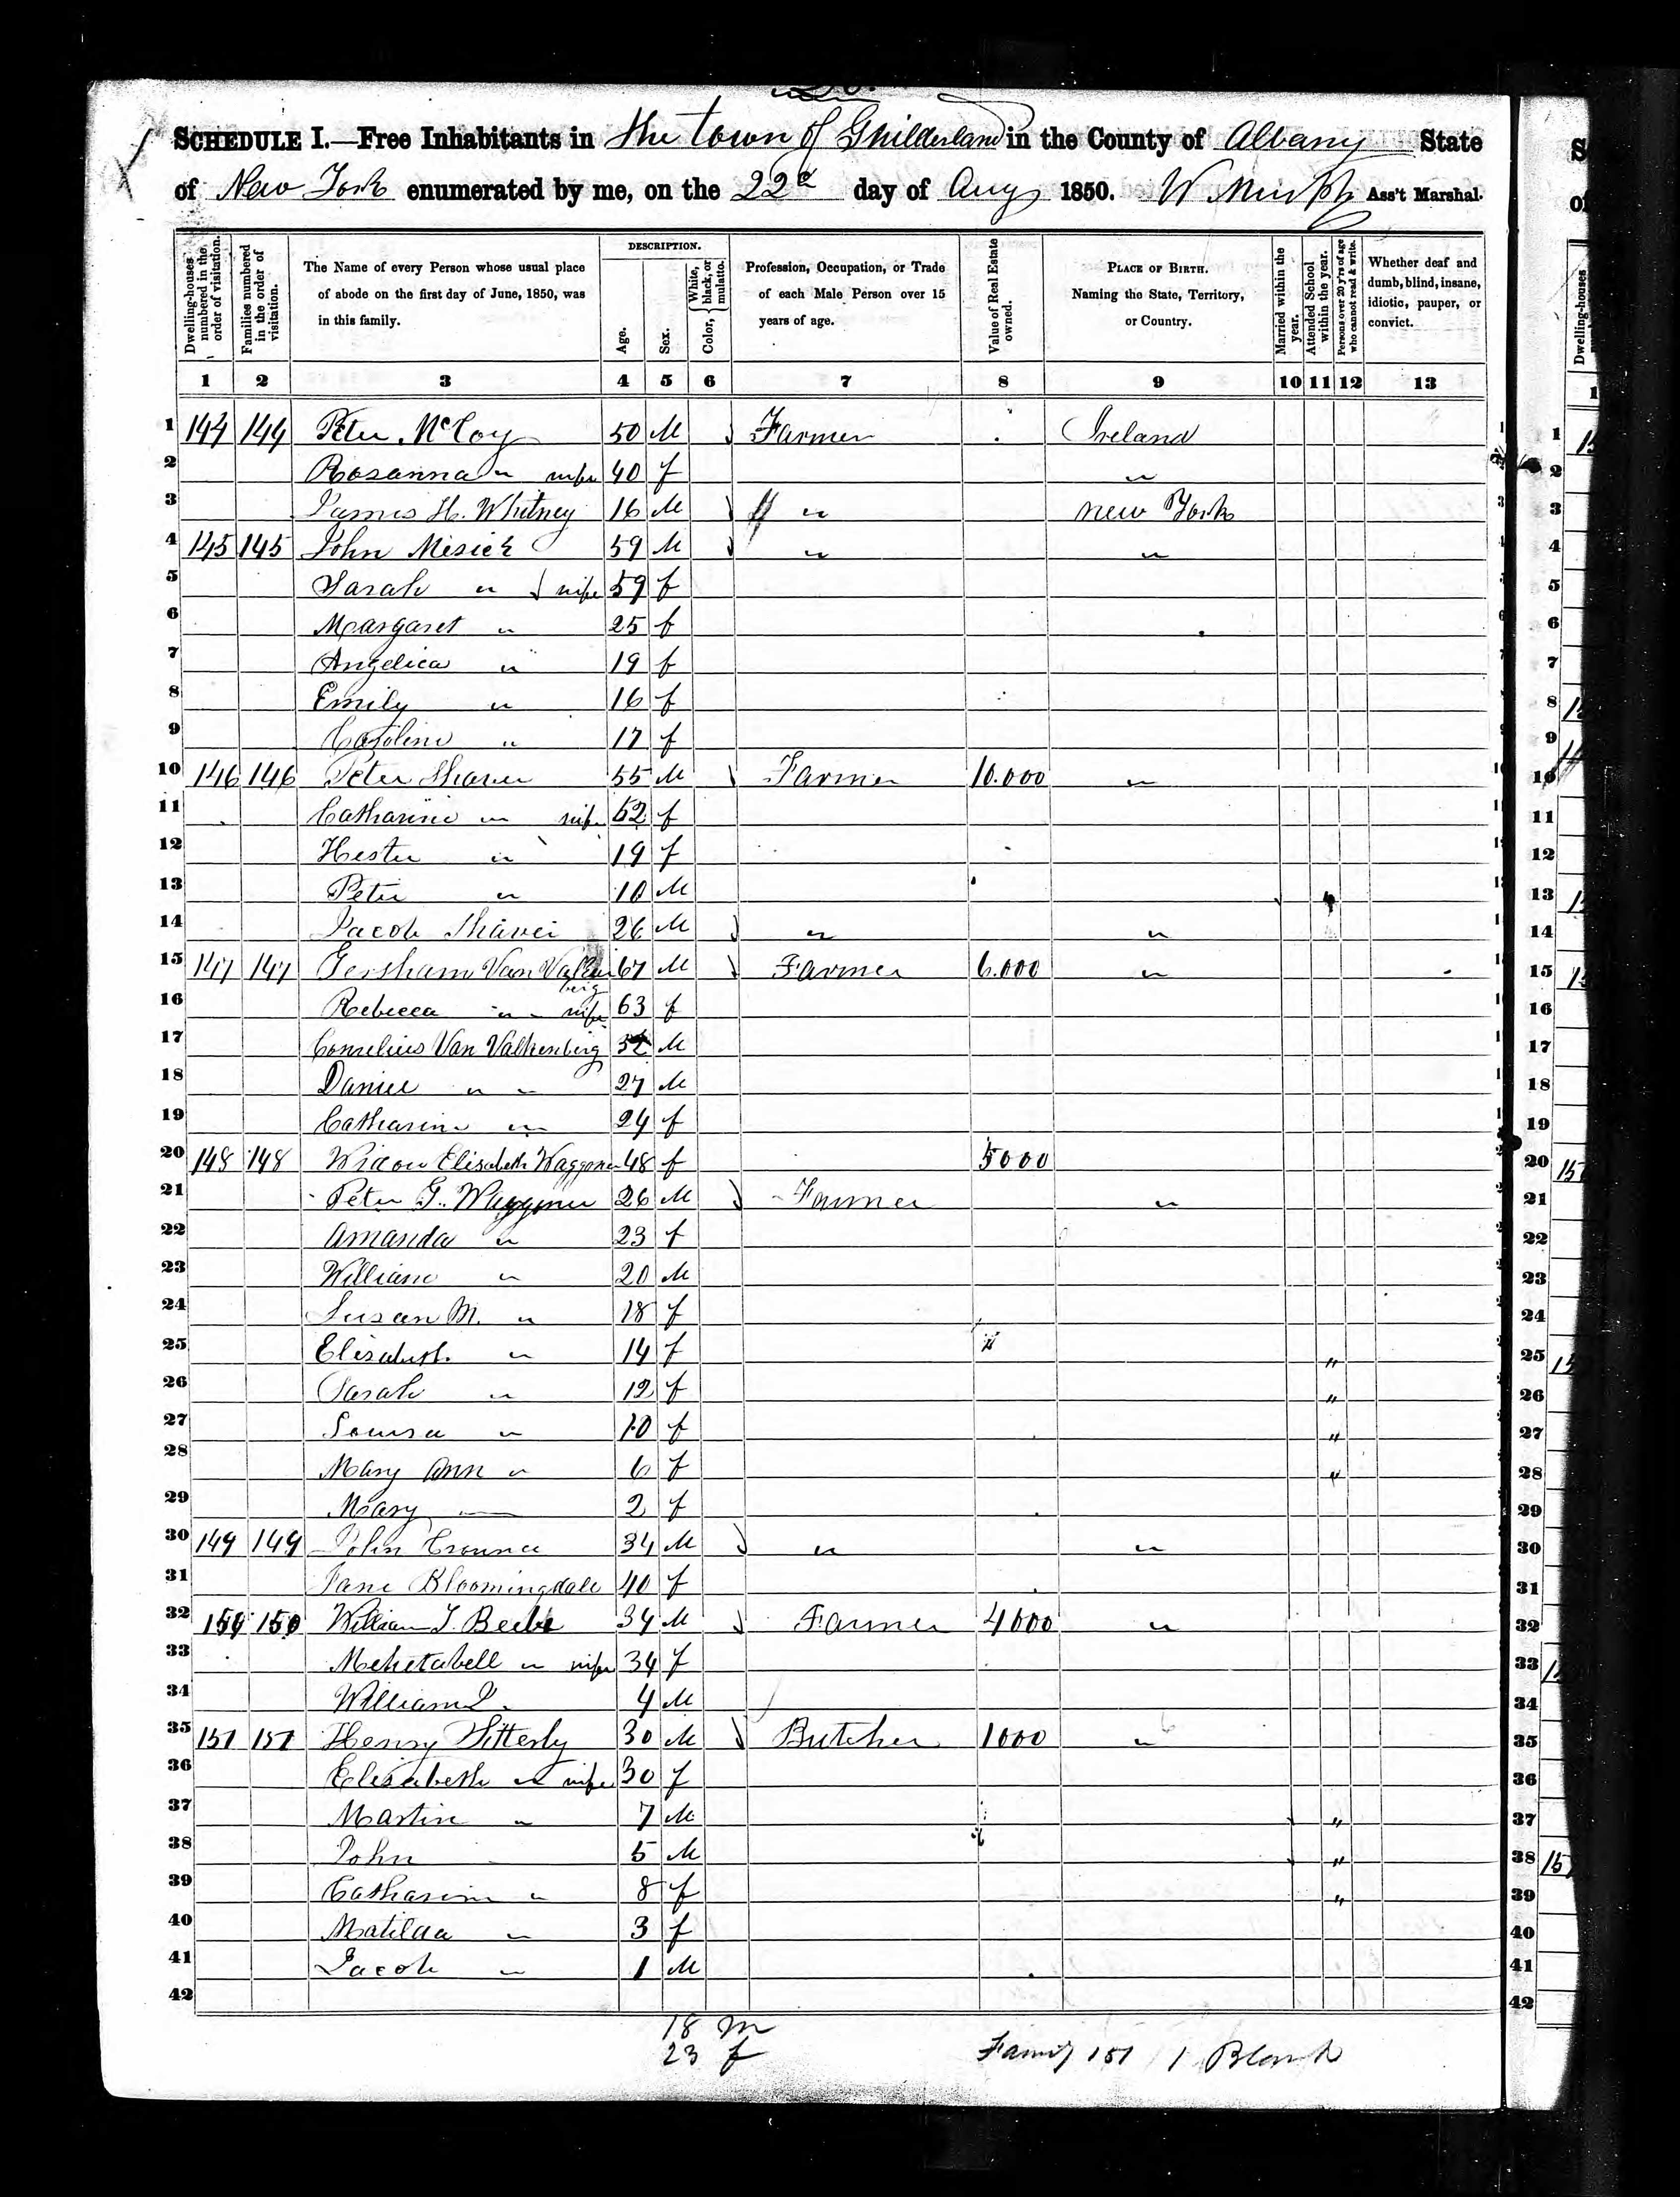 SCHEDULE I.—Free Inhabitants in the town of Guilderland in the County of Albany State
of New York enumerated by me, on the 22d day of Aug 1850. W Ass't Marshal.
Dwelling-houses numbered in the order of visitation.
Families numbered in the order of visitation.
The Name of every Person whose usual place of abode on the first day of June, 1850, was in this family.
DESCRIPTION.
Age.
Sex.
Color, { White, black, or mulatto.
Profession, Occupation, or Trade of each Male Person over 15 years of age.
Value of Real Estate owned.
PLACE OF BIRTH. Naming the State, Territory, or Country.
Married within the year.
Attended School within the year.
Persons over 20 y'rs of age who cannot read & write.
Whether deaf and dumb, blind, insane, idiotic, pauper, or convict.
1 2 3 4 5 6 7 8 9 10 11 12 13
1 144 144 Peter McCoy 50 M Farmer Ireland
2 Rosanna " wife 40 f "
3 James H. Whitney 16 M " New York
4 145 145 John Mesick 59 M " "
5 Sarah " wife 59 f
6 Margaret " 25 f
7 Angelica " 19 f
8 Emily " 16 f
9 Caroline " 17 f
10 146 146 Peter Shaver 55 M Farmer 10.000 "
11 Catharine " wife 52 f
12 Hester " 19 f
13 Peter " 10 M
14 Jacob Shaver 26 M " "
15 147 147 Gersham Van Valkenberg 67 M Farmer 6.000 "
16 Rebecca " " wife 63 f
17 Cornelius Van Valkenberg M
18 Daniel " " 27 M
19 Catharine " 24 f
20 148 148 Widow Elisabeth Waggoner 48 f 5000
21 Peter G. Waggoner 26 M Farmer "
22 Amanda " 23 f
23 William " 20 M
24 Susan M. " 18 f
25 Elisabeth " 14 f "
26 Sarah " 12 f "
27 Louisa " 10 f "
28 Mary Ann " 6 f "
29 Mary 2 f
30 149 149 John Crounce 34 M " "
31 Jane Bloomingdale 40 f
32 150 150 William J. Beebe 34 M Farmer 4000 "
33 Mehetabell " wife 34 f
34 William J. 4 M
35 151 151 Henry Sitterly 30 M Butcher 1000 "
36 Elisabeth " wife 30 f
37 Martin " 7 M "
38 John 5 M "
39 Catharine " 8 f "
40 Matilda " 3 f
41 Jacob " 1 M
42
18 m
23 f
Family 151 1 Blank